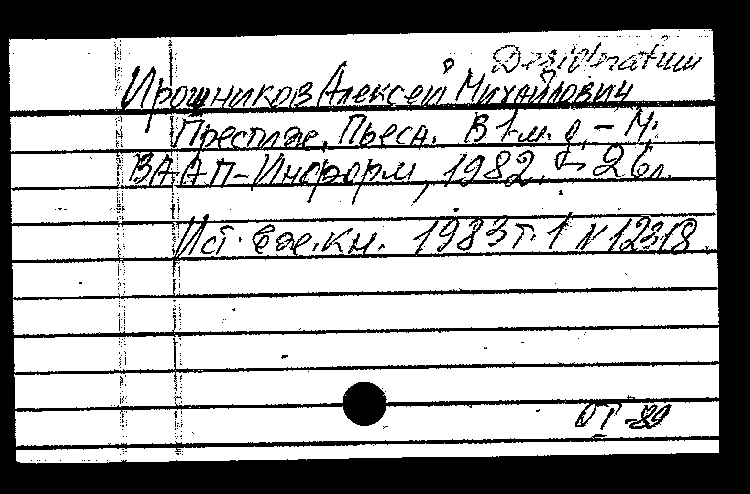 Desideratum
Ирошников Алексей Михайлович
Престиж. Пьеса. В 1 м. д. – М.
ВААП-Информ, 1982. – 26 л.
Ист. Еж.кн. 1983 т. 1 № 12318
VI -89